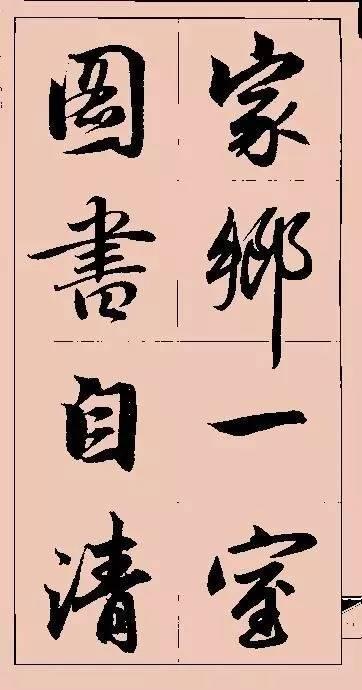 家鄉一室
圖書自清